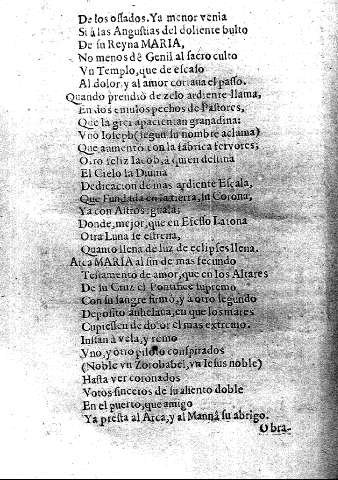 De los ossados. Ya menor venia
Si à las Angustias del doliente bulto
De su Reyna MARIA,
No menos dè Genil al sacro culto
Vn Templo, que de escaso
Al dolor, y al amor cortaua el passo.
Quando prendiò de zelo ardiente llama,
En dos emulos pechos de Pastores,
Que la grei apacientan granadina:
Vno Ioseph (segun su nombre aclama)
Que aumentò con la fabrica fervores;
Otro feliz Iacob, à quien destina
El Cielo la Diuina
Dedicacion de mas ardiente Escala,
Que Fundada en la tierra, su Corona,
Ya con Astros iguala;
Donde, mejor, que en Efesso Latona
Otra Luna se estrena,
Quanto llena de luz de eclipses llena.
Arca MARIA al fin de mas fecundo
Testamento de amor, que en los Altares
De su Cruz el Pontifice supremo
Con su sangre firmò, y à otro segundo
Deposito anhelaua, en que los mares
Cupiessen de dolor el mas extremo.
Instan à vela, y remo
Vno, y otro piloto conspirados
(Noble vn Zorobabel, vn Iesus noble)
Hasta ver coronados
Votos sinceros de su aliento doble
En el puerto, que amigo
Ya presta al Arca, y al Mannà su abrigo.
Obra-